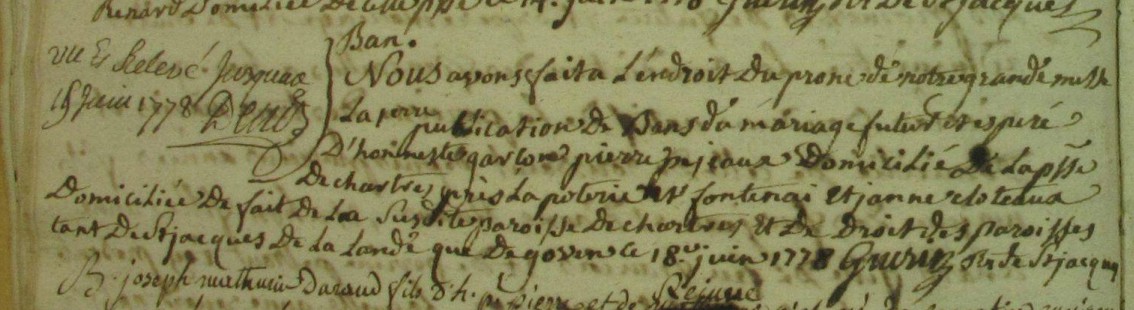 Renard Domiciliée de la ppsse ce 14. juin 1778 Guerin rr De St jacques
Ban.
vu Et Relevé Jusquau
19 Juin 1778
Nous avons fait a L'endroit Du prone de notre grande messe
La pere publication de Bans du mariage futur et esperé
D'honneste garson pierre Domicilié De La psse
De chartres près La poterie et fontenai Et janne cloteaux
Domiciliée De fait De La Susdite paroisse De chartres Et De Droit des paroisses
tant De St jacques De La Lande que De goven ce 18e juin 1778 Guerin rr De St jacques
Lejeune
B. joseph mathurin Daraud fils d'h. p. pierre et de